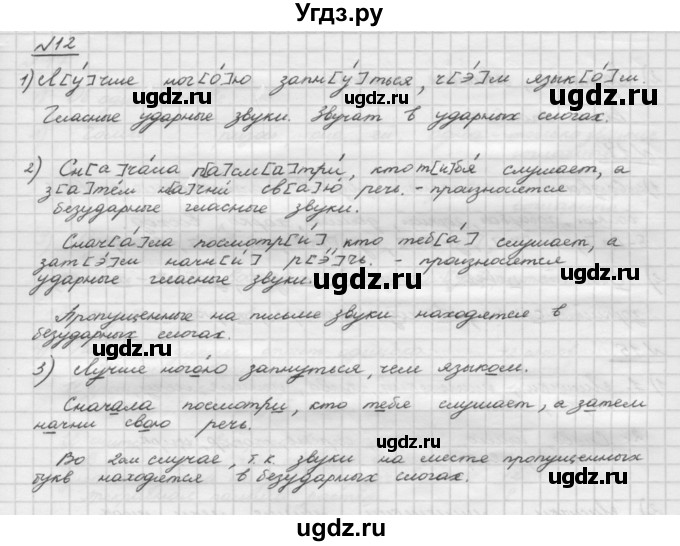 Угдз.ру
№12
1) Л[у́]чше ног[о́]ю запн[у́]ться, ч[э́]м язык[о́]м.
Гласные ударные звуки. Звучат в ударных слогах.
2) Сн[а]ча́ла п[а]см[а]три́, кто т[и]бя́ слушает, а
з[а]те́м н[а]чни́ св[а]ю́ речь. - произносятся
безударные гласные звуки.
Снач[а́]ла посмотр[и́], кто теб[а́] слушает, а
зат[э́]м начн[и́] р[э́]чь. - произносятся
ударные гласные звуки.
Пропущенные на письме звуки находятся в
безударных слогах.
3) Лучше ногою запнуться, чем языком.
Сначала посмотри, кто тебя слушает, а затем
начни свою речь.
Во 2ом случае, т.к. звуки на месте пропущенных
букв находятся в безударных слогах.
ugdz.ru
ugdz.ru
ugdz.ru
ugdz.ru
ugdz.ru
ugdz.ru
ugdz.ru
ugdz.ru
ugdz.ru
ugdz.ru
ugdz.ru